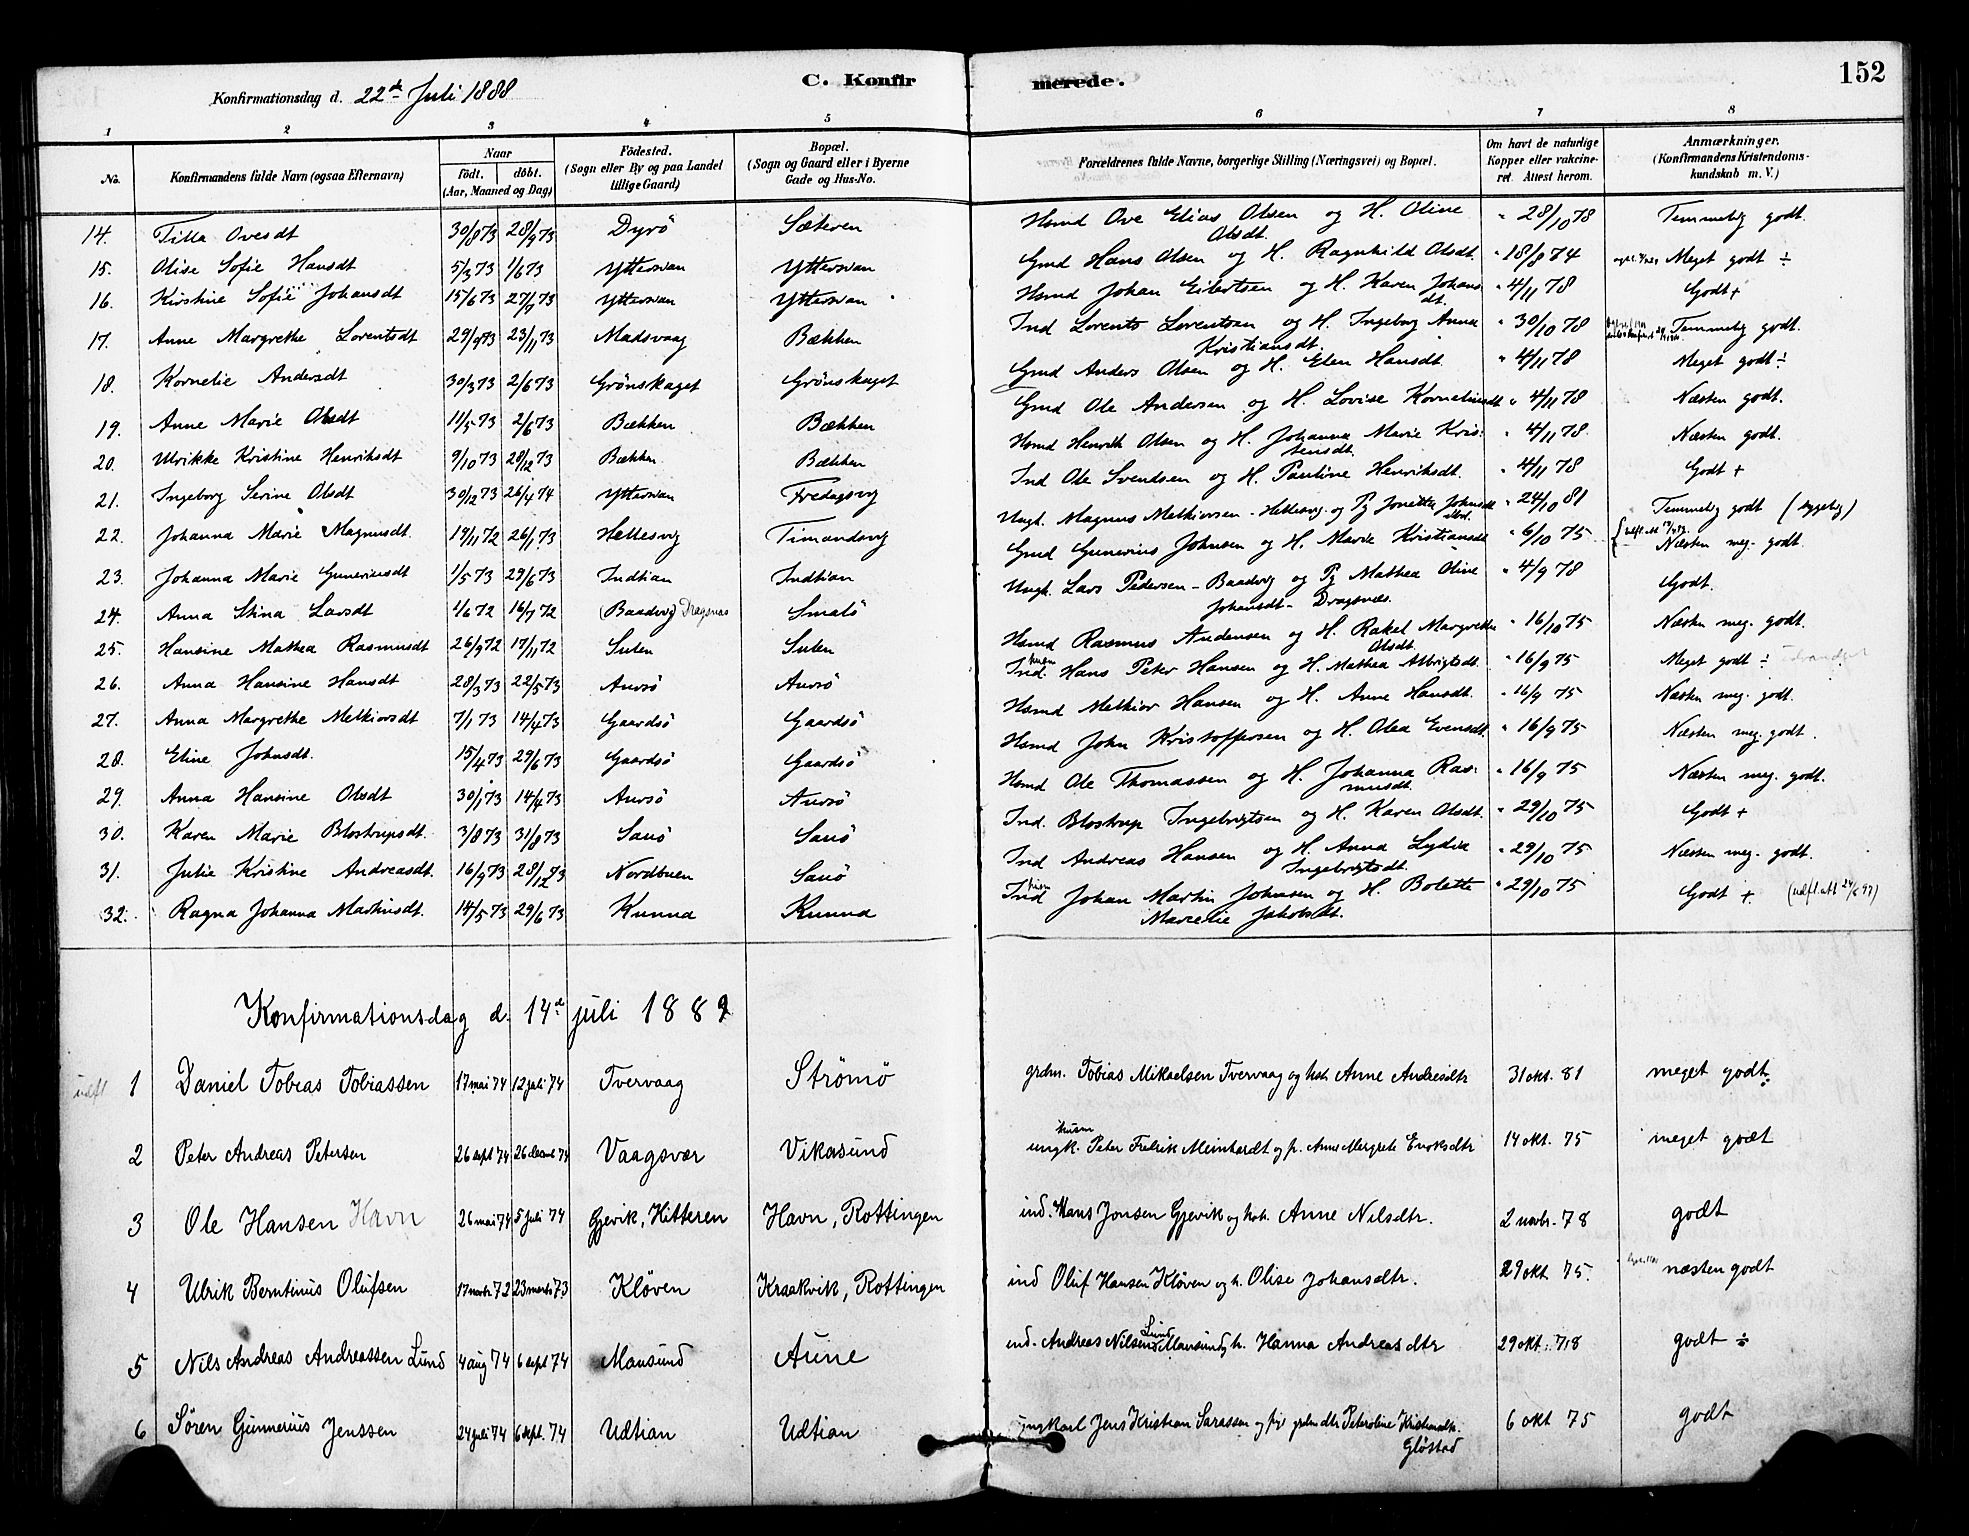 Konfirmationsdag d. 22de Juli 1888 C. Konfirmerede. 152
1 2 3 4 5 6 7 8
No. Konfirmandens fulde Navn (ogsaa Efternavn) Naar födt. döbt. (Aar, Maaned og Dag) Födested. (Sogn eller By og paa Landet tillige Gaard) Bopæl. (Sogn og Gaard eller i Byerne Gade og Hus-No. Forældrenes fulde Navne, borgerlige Stilling (Næringsvei) og Bopæl. Om havt de naturlige Kopper eller vakcineret. Attest herom. Anmærkninger. (Konfirmandens Kristendomskundskab m. V.)
14. Tilla Ovesdt 30/8 73 28/9 73 Dyrö Sæteren Hsmd Ove Elias Olsen og H. Oline Olsdt. " 28/10 78 Temmelig godt.
15. Olise Sofie Hansdt 5/3 73 1/6 73 Yttersian Yttersian Gmd Hans Olsen og H. Ragnhild Olsdt. " 18/8 74 Meget godt ÷
16. Kirstine Sofie Johansdt 15/6 73 27/9 73 Yttersian Yttersian Hsmd Johan Eilertsen og H. Karen Johansdt. " 4/11 78 Godt +
17. Anne Margrethe Lorentsdt 29/9 73 23/11 73 Madsvaag Bækken Ind Lorents Lorentsen og H. Ingeborg Anna Kristiansdt. " 30/10 78 Temmelig godt.
18. Kornelie Andersdt 30/3 73 2/6 73 Grönskaget Grönskaget Gmd Anders Olsen og H. Elen Hansdt. " 4/11 78 Meget godt ÷
19. Anne Marie Olsdt 11/5 73 2/6 73 Bækken Bækken Gmd Ole Andersen og H. Lovise Korneliusdt " 4/11 78 Næsten godt.
20. Ulrikke Kristine Henriksdt 9/10 73 28/12 73 Bækken Bækken Hsmd Henrik Olsen og H. Johanna Marie Kristensdt. " 4/11 78. Næsten godt.
21. Ingeborg Serine Olsdt 30/12 73 26/4 74 Yttersian Fredagsvg Ind Ole Svendsen og H. Pauline Henriksdt. " 4/11 78 Godt +
22. Johanna Marie Magnusdt. 19/11 72 26/1 73 Hellesvig Timandsvg Ungk. Magnus Melkiorsen - Hellesvg. og Pg Jonetta Johnsdt " 24/10 81 Temmelig godt (sygelig)
23. Johanna Marie Guneriusdt 1/5 73 29/6 73 Indtian Indtian Gmd Gunerius Johnsen og H. Marie Kristiansdt " 6/10 75 Næsten meg. godt.
24. Anna Stina Larsdt 1/6 72 16/7 72 (Baadsvg) Dragsnæs Smalö Ungk. Lars Pedersen - Baadsvg og Pg Mathea Oline Johansdt - Dragsnæs. " 4/9 78 Godt.
25. Hansine Mathea Rasmusdt 26/9 72 17/11 72 Sulen Sulen Hsmd Rasmus Andersen og H. Rakel Margrethe Olsdt. " 16/10 75 Næsten meg. godt.
26. Anna Hansine Hansdt 28/3 73 22/5 73 Aursö Aursö Ind. husm Hans Peter Hansen og H. Mathea Albrigtsdt. " 16/9 75 Meget godt ÷
27. Anna Margrethe Melkiorsdt 7/1 73 14/4 73 Gaardsö Gaardsö Hsmd Melkior Hansen og H. Anne Hansdt. " 16/9 75 Næsten meg. godt.
28. Eline Johnsdt. 15/4 73 29/6 73 Gaardsö Gaardsö Hsmd John Kristoffersen og H. Olea Evensdt. " 16/9 75 Næsten meg. godt.
29. Anna Hansine Olsdt 30/1 73 14/4 73 Aursö Aursö Hsmd Ole Thomassen og H. Johanna Rasmusdt. " 16/9 75 Næsten meg. godt.
30. Karen Marie Blostrupsdt. 3/8 73 31/8 73 Sanö Sanö Ind. Blostrup Ingebrigtsen og H. Karen Olsdt. " 29/10 75 Godt +
31. Julie Kristine Andreasdt. 16/9 73 28/12 73 Nordbuen Sanö Ind Andreas Hansen og H. Anna Lydia Ingebrigtsdt. " 29/10 75 Næsten meg. godt.
32. Ragna Johanna Martinsdt. 14/5 73 29/6 73 Kunna Kunna Ind husm Johan Martin Johnsen og H. Bolette Marcelie Jakobsdt. " 29/10 75 Godt +. (udfl. att 24/6 97)
Konfirmationsdag d. 14de juli 1889
udfl 1 Daniel Tobias Tobiassen 17 mai 74 12 juli 74 Tvervaag Strömö grdm. Tobias Mikaelsen Tvervaag og h. Anne Andreasdtr 31 okt. 81 meget godt ÷
2 Peter Andreas Petersen 26 sept 74 26 decmb 74 Vaagsvær Vikasund ungk. husm Peter Fredrik Meinhardt og p. Anne Mergrete Enoksdtr 14 okt. 75 meget godt
3 Ole Hansen Havn 26 mai 74 5 juli 74 Gjevik, Hitteren Havn, Rottingen ind. Hans Jonsen Gjevik og h. Anne Nilsdtr. 2 novbr. 78 godt
4 Ulrik Berntinus Olufsen 17 novbr 72 23 marts 73 Klöven Kraakvik, Rottingen ind Oluf Hansen Klöven og h. Olise Johansdtr. 29 okt 75. næsten godt
5 Nils Andreas Andreassen Lund 4 aug 74 6 sept 74 Mausund Aune ind. Andreas Nilsen Lund Mausund, h. Hanna Andreasdtr 29 okt. 78 godt ÷
6 Sören Gunnerius Jenssen 24 juli 74 6 sept. 74 Udtian Udtian Ungkarl Jens Kristian Larsen og pige grdm dtr Peteroline Kristensdtr. Glöstad 6 okt 75 godt